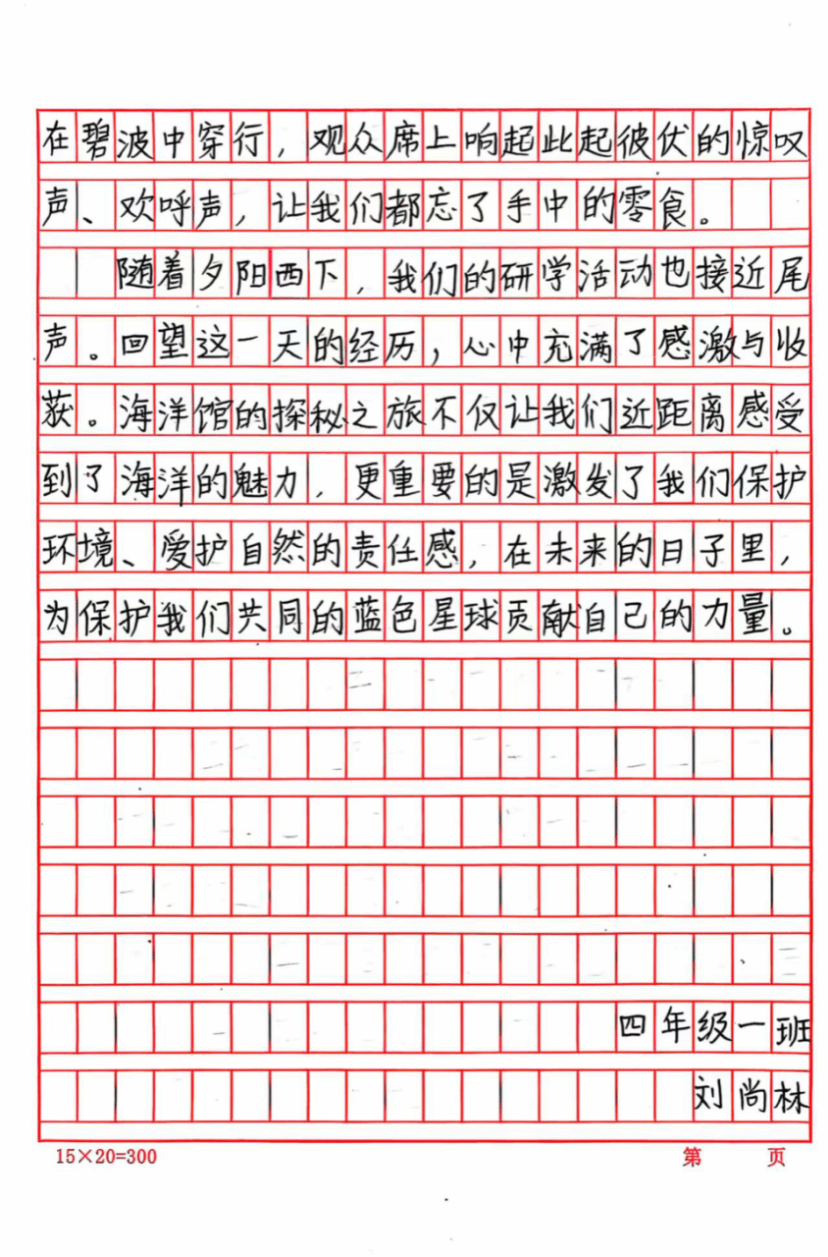 在碧波中穿行，观众席上响起此起彼伏的惊叹
声、欢呼声，让我们都忘了手中的零食。
随着夕阳西下，我们的研学活动也接近尾
声。回望这一天的经历，心中充满了感激与收
获。海洋馆的探秘之旅不仅让我们近距离感受
到了海洋的魅力，更重要的是激发了我们保护
环境、爱护自然的责任感，在未来的日子里，
为保护我们共同的蓝色星球贡献自己的力量。
四年级一班
刘尚林
15×20=300 第 页